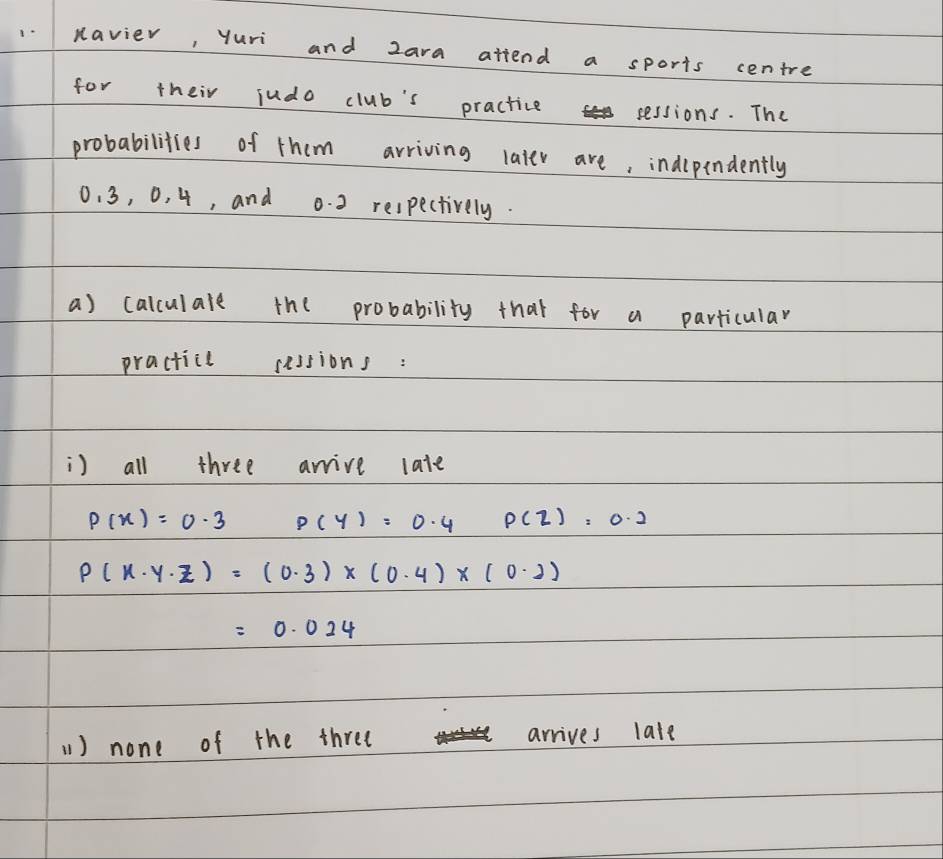 1. Xavier, Yuri and Zara attend a sports centre
for their judo club's practice sessions. The
probabilities of them arriving later are, independently
0.3, 0.4, and 0.2 respectively.
a) Calculate the probability that for a particular
practice sessions:
i) all three arrive late
P(X) = 0.3 P(Y) = 0.4 P(Z) = 0.2
P(X.Y.Z) = (0.3) x (0.4) x (0.2)
= 0.024
ii) none of the three arrives late